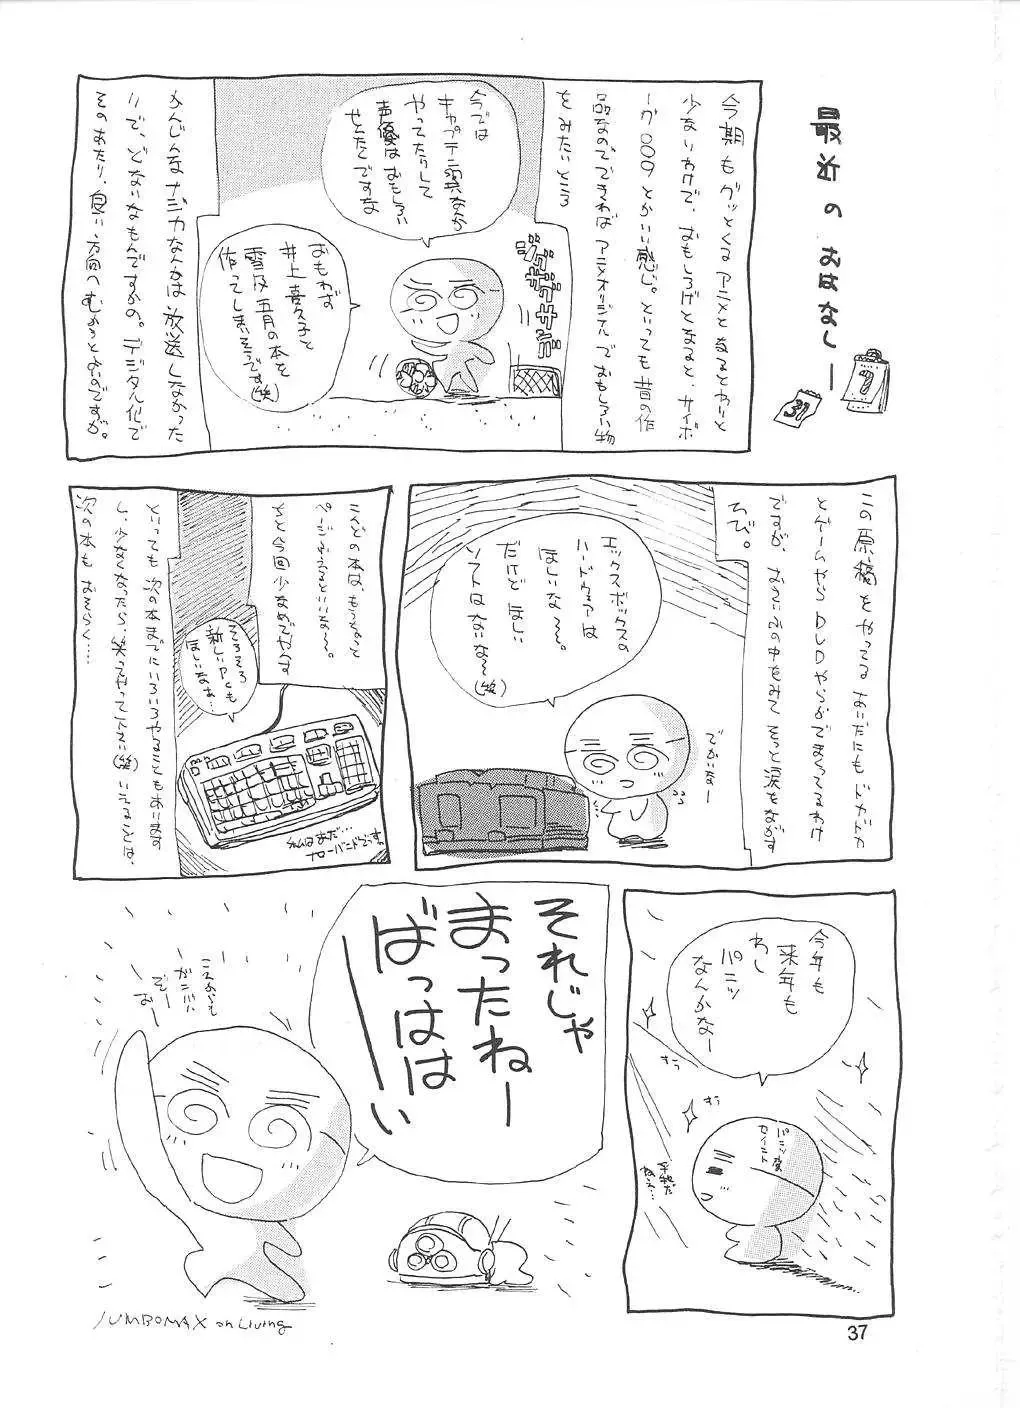 最近のおはなしー
7
31
今期もグッとくるアニメとなるとわりと
少ないわけで、おもしろげとなると、サイボ
ーグ009とかいい感じ。といっても昔の作
品なので、できればアニメオリジナルでおもしろい物
をみたいところ
今では
キャプテン翼なんか
やってたりして
声優はおもしろい
せんたくですな
おもわず
井上喜久子と
雪乃五月の本を
作ってしまいそうです(笑)
かんじんなナジカなんかは放送しなかった
リで、どないなもんですかの。デジタル化で
そのあたり、良い方向へむかうとよいのですが。
この原稿をやってるあいだにもドカドカ
とゲームやらDVDやらがでまくってるわけ
ですが、おさいふの中をみてそっと涙をながす
日び。
エックスボックスの
ハードウェアは
ほしいな〜。
だけどほしい
ソフトはないな〜(笑)
でかいなー
こんどの本は、もうちょっと
ページがふえるといいな〜。
ちと今回少なめでやんす
そろそろ
新しいPCも
ほしいなぁ…
といっても次の本までにいろいろやることもあります
し、少なくなったら、笑ってやって下さい(笑)いえることは、
次の本もおそらく……
今年も
来年も
わし
パニッ
なんかなー
それじゃ
まったねー
ばっははーい
これからも
ガンバル
ぞー
おー
JUMBOMAX on Living
37